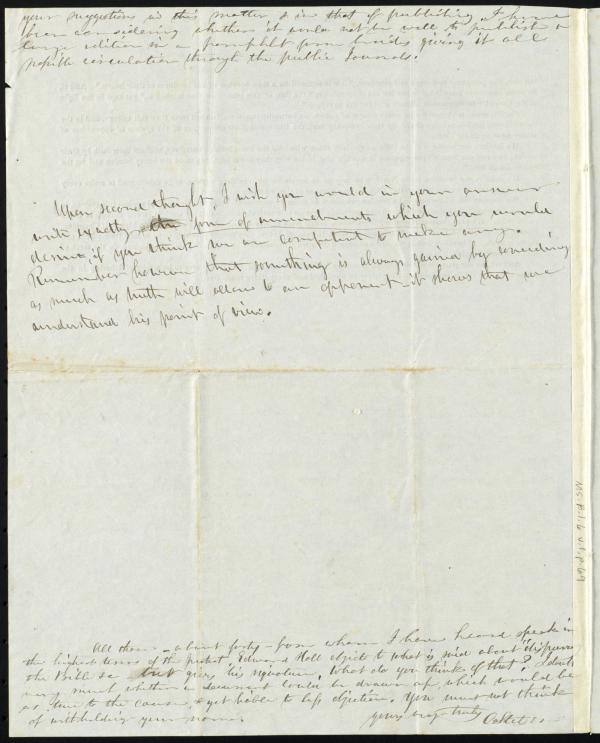 your suggestions in this matter & in that of publishing. I have
been considering whether it would not be well to publish a
large edition in a pamphlet form besides giving it all
possible circulation through the public Journals.
Upon second thought, I wish you would in your answer
write exactly the form of amendments which you would
desire, if you think we are competent to make any.
Remember however that something is always gained by conceding
as much as truth will allow to an opponent - it shows that we
understand his point of view.
All those - about forty - from whom I have heard speak in
the highest terms of the protest. Edward Hall objects to what is said about
the Bible &c but gives his signature. What do you think of that? I doubt
very much whether a document could be drawn up, which would be
as true to the cause & yet liable to less objection. You must not think
of withholding your name.
yours very truly
MS. B.1.6 v.1, p.69